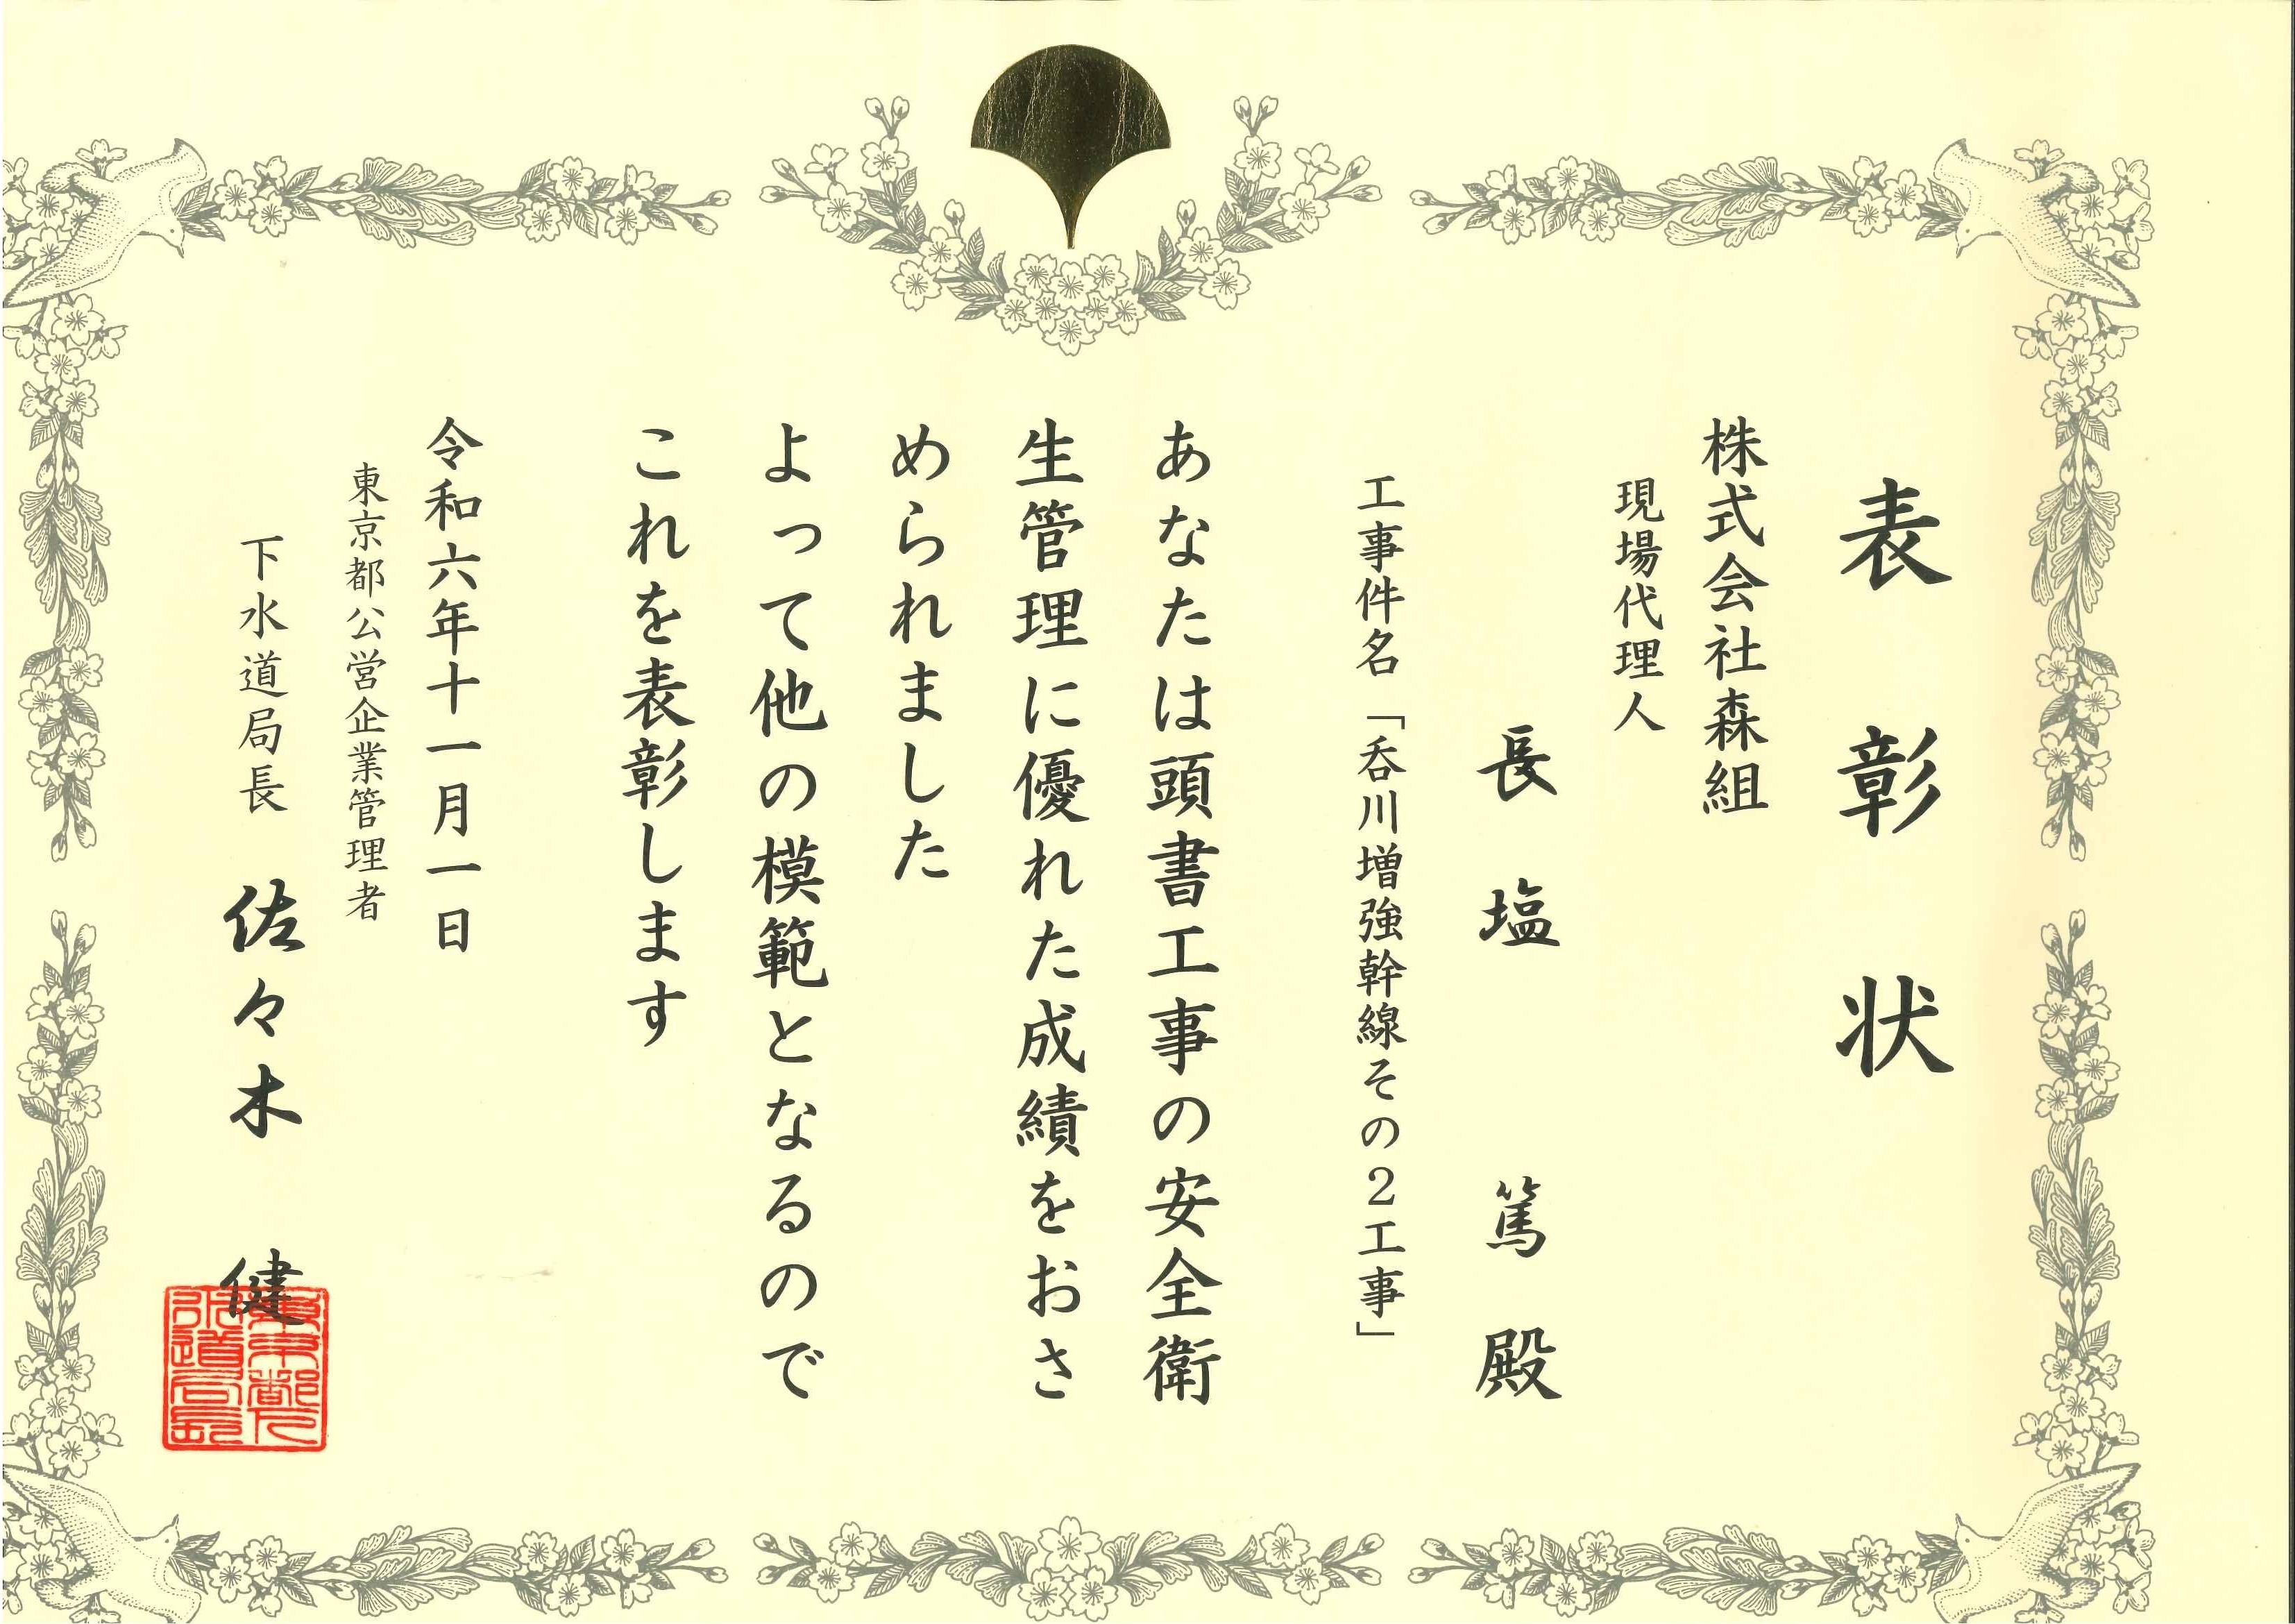 表彰状
株式会社森組
現場代理人
長塩 篤 殿
工事件名「呑川増強幹線その2工事」
あなたは頭書工事の安全衛
生管理に優れた成績をおさ
められました
よって他の模範となるので
これを表彰します
令和六年十一月一日
東京都公営企業管理者
下水道局長 佐々木 健
東京都下
水道局長